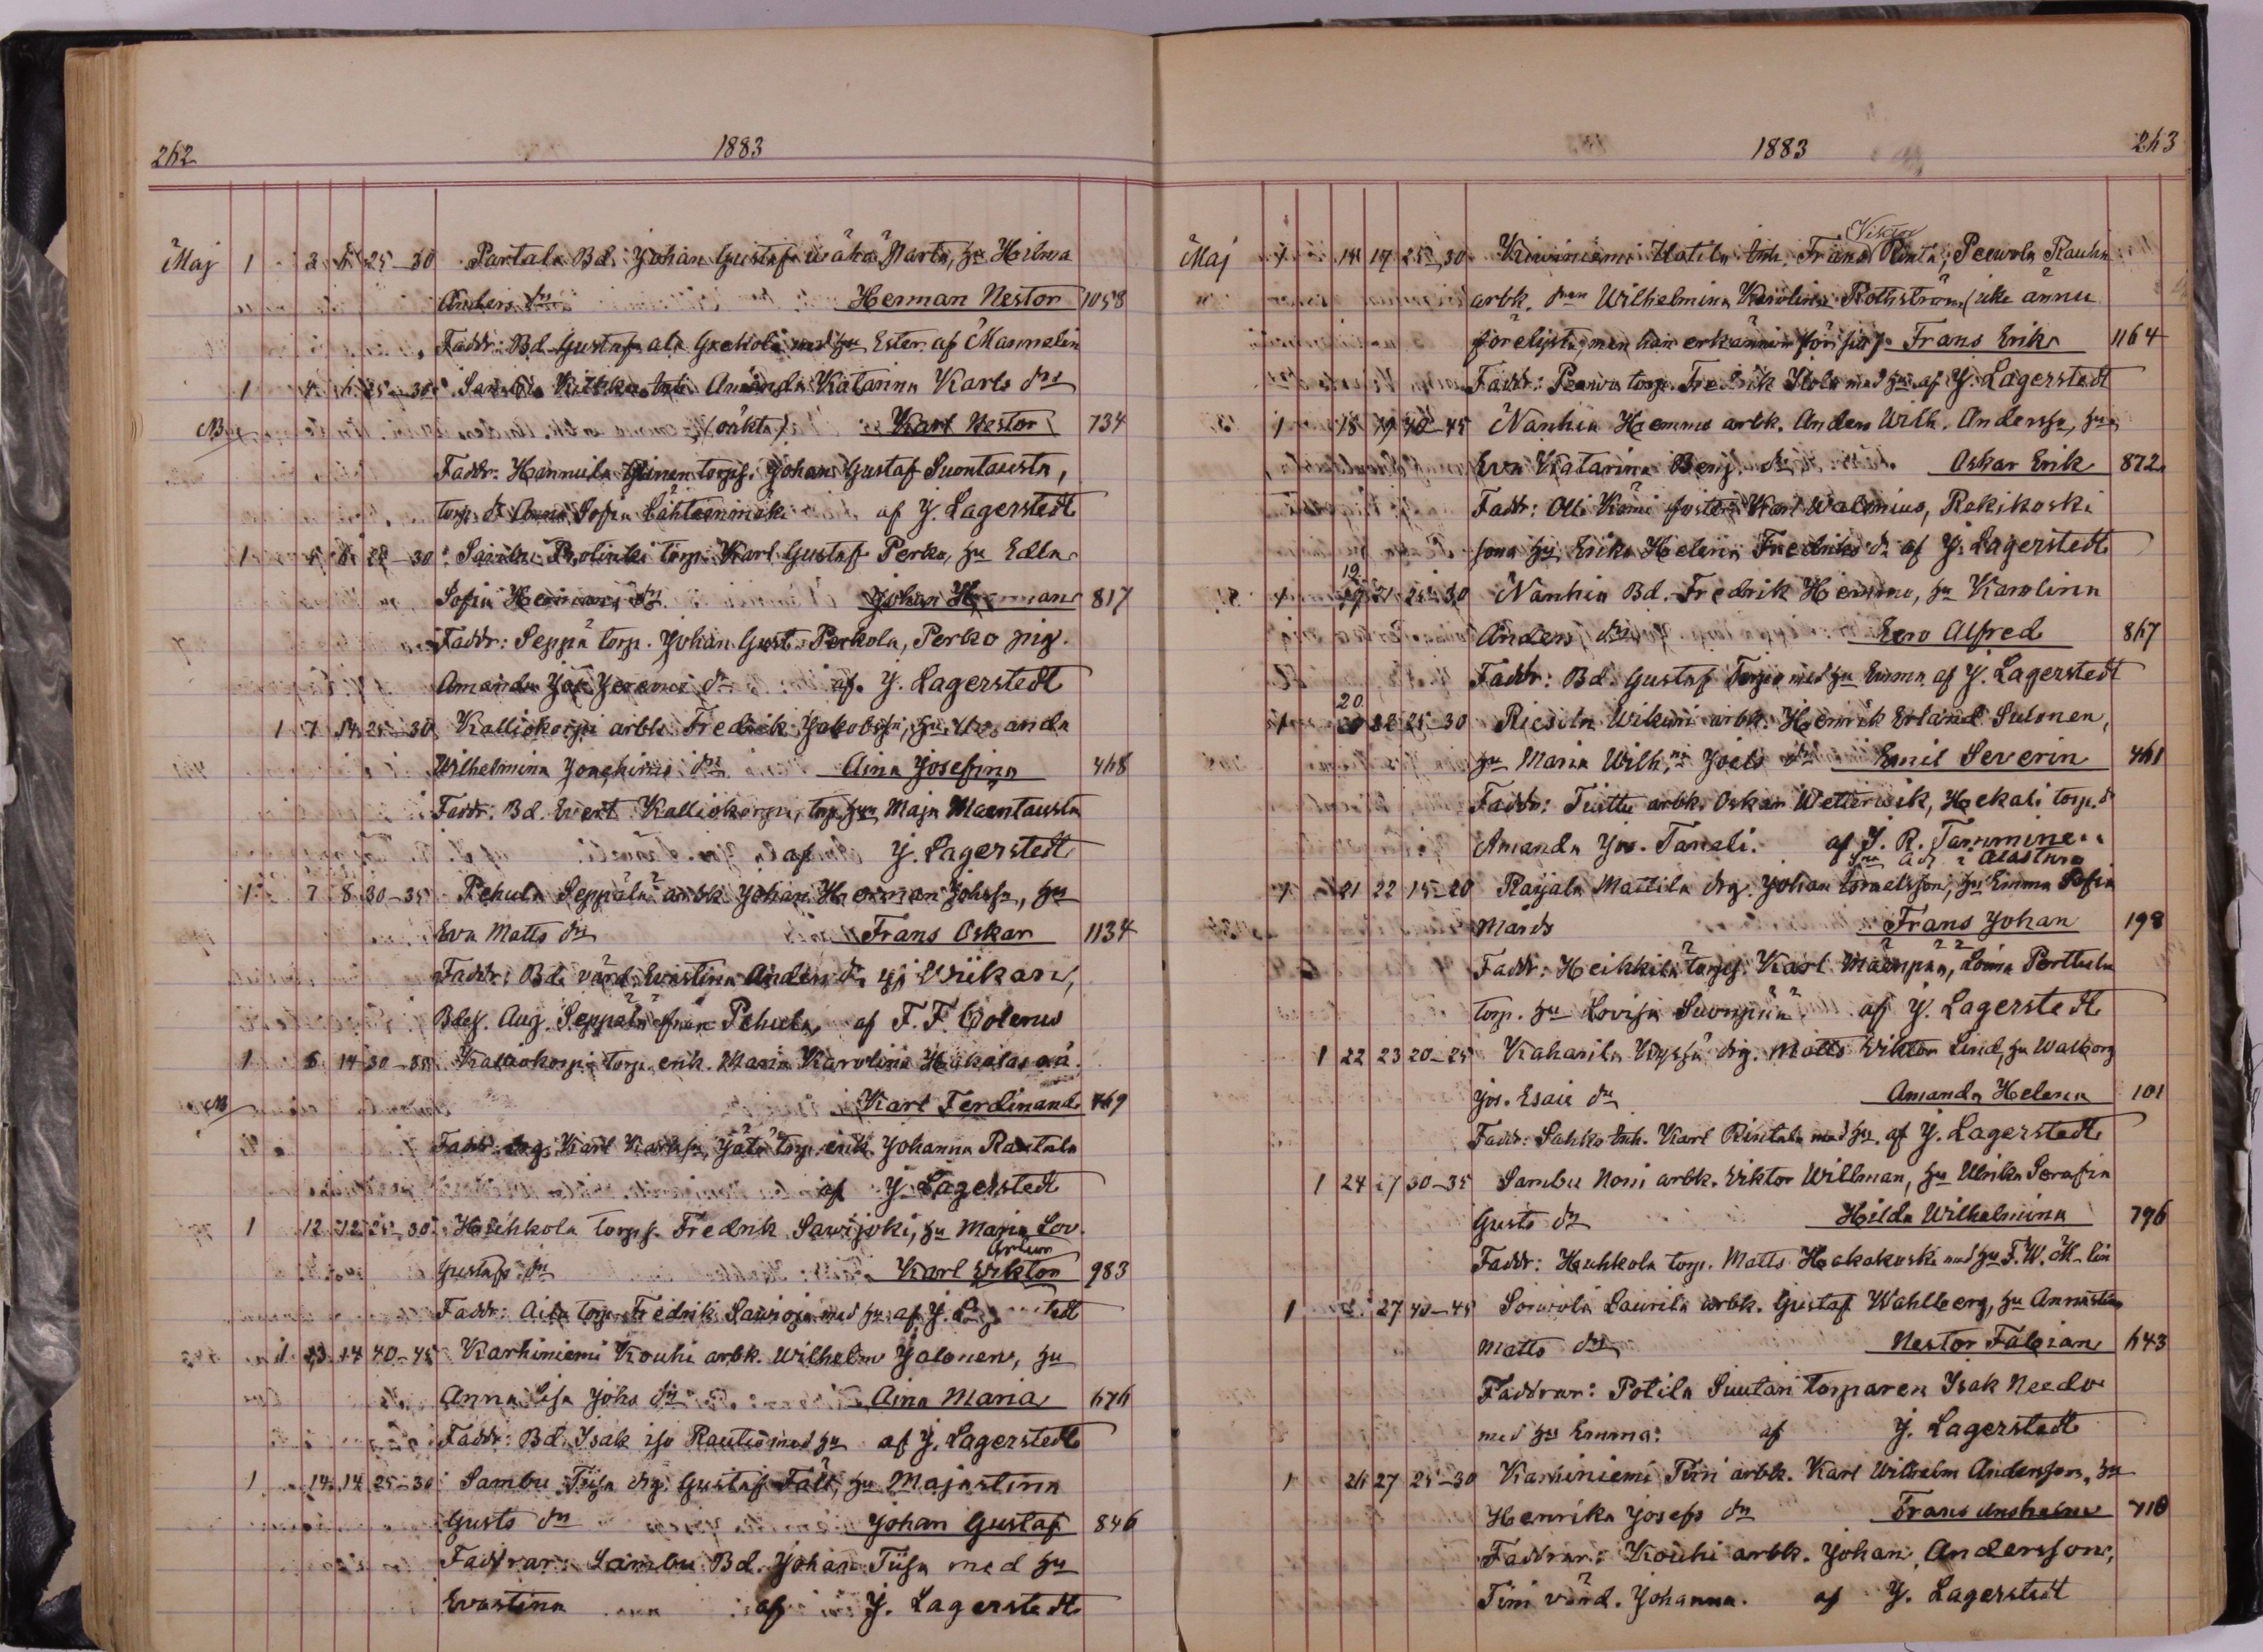 262 1883
Maj 1 2 6 25-30 Partala Bd. Johan Gustaf wähä Marta, hu Hilma
Anders dr Herman Nestor 1058
Faddr: Bd Gustaf ala Grekola med hu Ester af Mannelin
1 4 6 25-30 Amanda Katarina Karls dr
NB (oäkta) Karl Nestor 734
Faddr: Hannula Gunnen torps. Johan Gustaf Suontausta,
torp. dr Anna Sofia Lähteenmäki af J. Lagerstedt
1 5 6 25-30 Sambu Prolintti torp. Karl Gustaf Perko, hu Edla
Sofia Hermans dr Johan Herman 817
Faddr: Seppä torp. Johan Gust. Perkola, Perko pig.
Amanda Jos. Jeremi dr af J. Lagerstedt
1 7 14 25-30 Kalliokorpi arbk. Fredrik Jakobsn, hu Amanda
Wilhelmina Joachims dr Aina Josefina 468
Faddr: Bd. Evert Kalliokorpi, torp. hu Maja Maentausta
af J. Lagerstedt
1 7 8 30-35 Pehula Seppälä arbk Johan Herman Johsn, hu
Eva Matts dr Frans Oskar 1134
Faddr: Bd. värd. Evastina Anders dr Wiikari,
Bdes. Aug. Seppälä från Pehula, af F. F. Colerus
1 6 14 30-35 Kalliokorpi torp. enk. Maria Karolina Hakala oä.
NB Karl Ferdinand 469
Faddr: drg. Karl Karlsn, Jätä torp. enk. Johanna Rautala
af J. Lagerstedt
1 12 12 25-30 Huhkola torps. Fredrik Sawijoki, hu Maria Lov.
Artur
Gustafs dr Karl Viktor 983
Faddr: Aila torp. Fredrik Sawioja med hu af J. Lagerstedt
1 13 14 40-45 Karhiniemi Kouhi arbk. Wilhelm Jalonen, hu
Anna Lisa Johs dr Aina Maria 676
Faddr: Bd. Isak iso Rautio med hu af J. Lagerstedt
1 14 14 25-30 Sambu Tiisa drg. Gustaf Fält, hu Majastina
Gusts dr Johan Gustaf 846
Faddrar: Sambu Bd. Johan Tiisa med hu
Evastina af J. Lagerstedt
1883 263
Viktor
Maj 1 14 17 25-30 Kiviniemi Uotila inh. Frans Rinta, Peevola Rauhn
arbk. dran Wilhelmina Karolina Rothström (icke ännu
förelyst, men han erkänner för sitt) Frans Erik 1164
Faddr: Peewo torp. Fredrik Stola med hu af J. Lagerstedt
1 18 19 40-45 Nanhia Hemmo arbk. Anders Wilh. Anderssn, hu
Eva Katarina Benj. dr Oskar Erik 872
Faddr: Olli Kämi foster Karl Walenius, Rekikoski
sona hu Erika Helena Fredriks dr af J. Lagerstedt
19
1 21 25-30 Nanhia Bd. Fredrik Hemmo, hu Karolina
Anders dr Eero Alfred 867
Faddr: Bd. Gustaf Torpo med hu Emma af J. Lagerstedt
20
1 22 25-30 Riesola Wikari arbk. Henrik Erland Sulonen,
hu Maria Wilh.na Joels dr Emil Severin 461
Faddr: Tuittu arbk. Oskar Wetterwik, Hekali torp. d
Amanda Jos. Taneli. af J. R. Tamminen
Alastaro
1 21 22 15-20 Rayala Mattila drg. Johan Israelsson, hu Emma Sofia
Mårds Frans Johan 198
Faddr: Heikkilä torps. Karl Mäenpää, Loima Perttula
torp. hu Lovisa Suonpää af J. Lagerstedt
1 22 23 20-25 Kaharila Wyssä drg. Matts Viktor Lind, hu Walborg
Jos. Esaie dr Amanda Helena 101
Faddr: Sahko inh. Karl Rintala med hu af J. Lagerstedt
1 24 27 30-35 Sambu Noni arbk. Viktor Willman, hu Ulrika Serafia
Gusts dr Hilda Wilhelmina 796
Faddr: Huhkola torp. Matts Hakakoski med hu F. W. M-lin
1 27 40-45 Soinola Laurila arbk. Gustaf Wahlberg, hu Annastina
Matts dr Nestor Fabian 643
Faddrar: Potila Suutari torparen Isak Needo
med hu Emma: af J. Lagerstedt
1 26 27 25-30 Karhiniemi Piri arbk. Karl Wilhelm Andersson, hu
Henrika Josefs dr Frans Anshelm 710
Faddrar: Kouhi arbk. Johan Andersson,
Piri värd. Johanna. af J. Lagerstedt